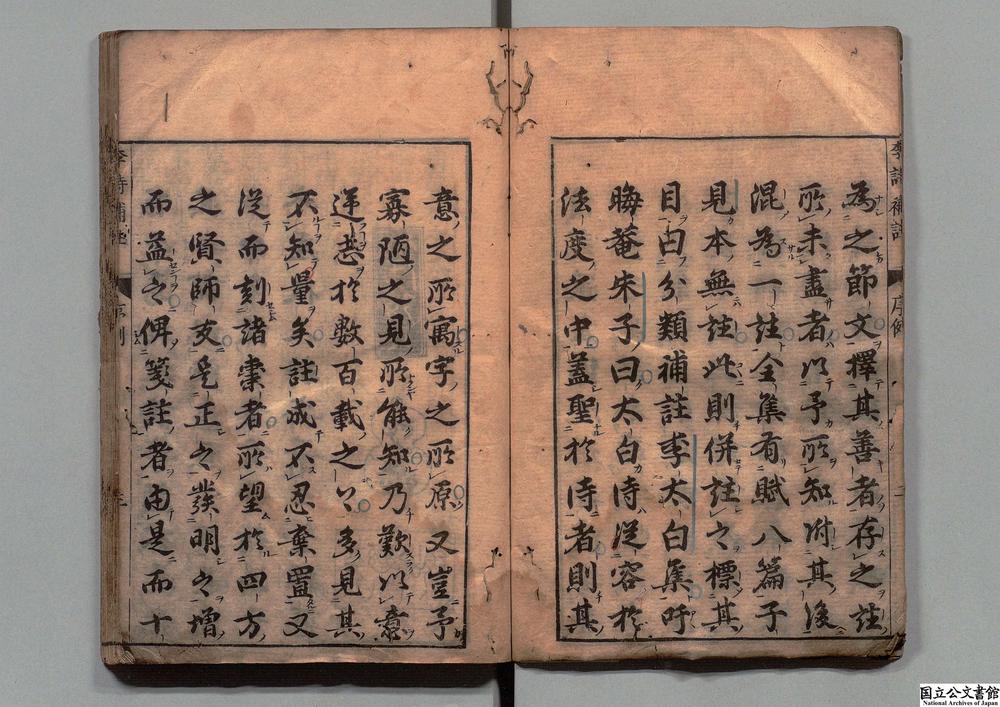 為之節文擇其善者存之註
所未盡者以予所知附其後
混為一註全集有賦八篇子
見本無註此則併註之標其
目曰分類補註李太白集吁
晦菴朱子曰太白詩從容於
法度之中蓋聖於詩者則其
意之所寓字之所原又豈予
寡陋之見所能知乃歎以意
逆意於數百載之上多見其
不知量矣註成不忍棄置又
従而刻諸棗者所望於四方
之賢師友是正之發明之増
而益之俾箋註者由是而十
李詩補註
序例
李詩補註
序例
国立公文書館
National Archives of Japan